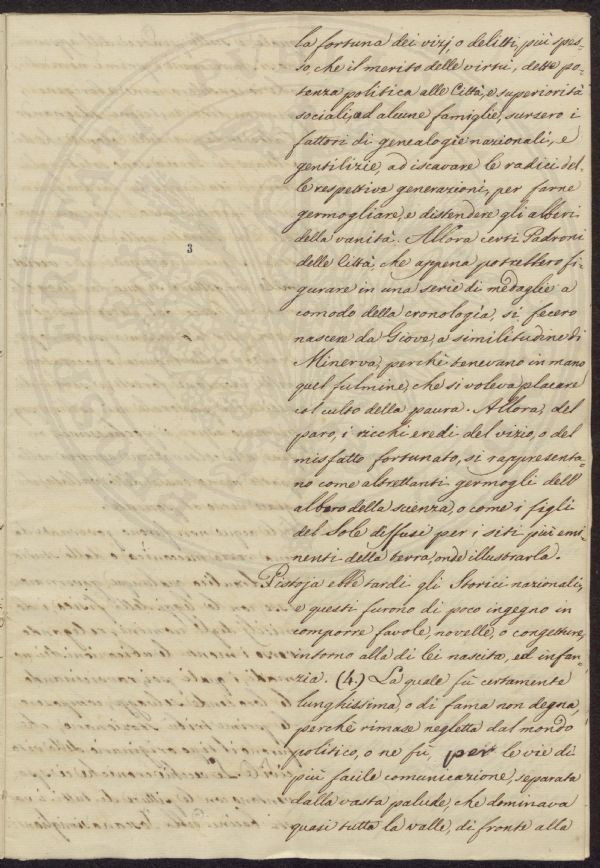 la fortuna dei vizj, o delitti, più spes-
so, che il merito delle virtù, dette po-
tenza politica alle Città, e superiorità
sociali, ad alcune famiglie, sursero i
fattori di genealogie nazionali, e
gentilizie, ad iscavare le radici del-
le respettive generazioni, per farne
germogliare, e distendere gli alberi
della vanità. Allora certi Padroni
delle Città, che appena potrebbero fi-
gurare in una serie di medaglie a
comodo della cronologia, si fecero
nascere da Giove, a similitudine di
Minerva, perchè tenevano in mano
quel fulmine, che si voleva placare
col culto della paura. Allora, del
paro, i ricchi eredi del vizio, o del
misfatto fortunato, si rappresenta-
no come altrettanti germogli dell'
albero della scienza, o come i figli
del Sole diffusi per i siti più emi-
nenti della terra, onde illustrarla.
Pistoja ebbe tardi gli Storici nazionali,
e questi furono di poco ingegno in
comporre favole, novelle, o congetture,
intorno alla di lei nascita, ed infan-
zia. (4.) La quale fù certamente
lunghissima, o di fama non degna,
perchè rimase negletta dal mondo
politico, o ne fù, per le vie di
più facile comunicazione, separata
dalla vasta palude, che dominava
quasi tutta la valle, di fronte alla
3